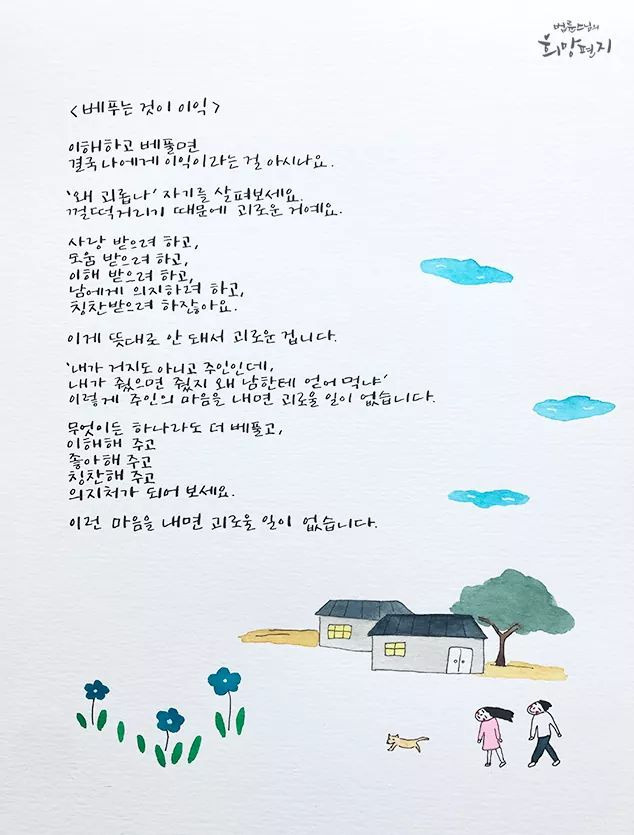 법륜스님의
희망편지
<베푸는 것이 이익>
이해하고 베풀면
결국 나에게 이익이라는 걸 아시나요.
'왜 괴롭나' 자기를 살펴보세요.
껄떡거리기 때문에 괴로운 거예요.
사랑 받으려 하고,
도움 받으려 하고,
이해 받으려 하고,
남에게 의지하려 하고,
칭찬받으려 하잖아요.
이게 뜻대로 안 돼서 괴로운 겁니다.
'내가 거지도 아니고 주인인데,
내가 줬으면 줬지 왜 남한테 얻어 먹냐'
이렇게 주인의 마음을 내면 괴로울 일이 없습니다.
무엇이든 하나라도 더 베풀고,
이해해 주고
좋아해 주고
칭찬해 주고
의지처가 되어 보세요.
이런 마음을 내면 괴로울 일이 없습니다.